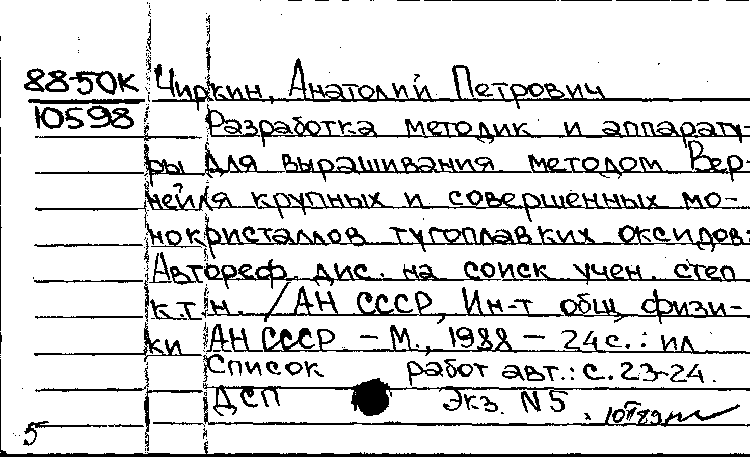 88-50К Чиркин, Анатолий Петрович
10598 Разработка методик и аппарату-
ры для выращивания методом Вер-
нейля крупных и совершенных мо-
нокристаллов тугоплавких оксидов:
Автореф. дис. на соиск учен. степ
к.т.н. /АН СССР, Ин-т общ. физи-
ки АН СССР. - М., 1988 - 24с.: ил
Список работ авт.: с. 23-24.
ДСП Экз. N5
5